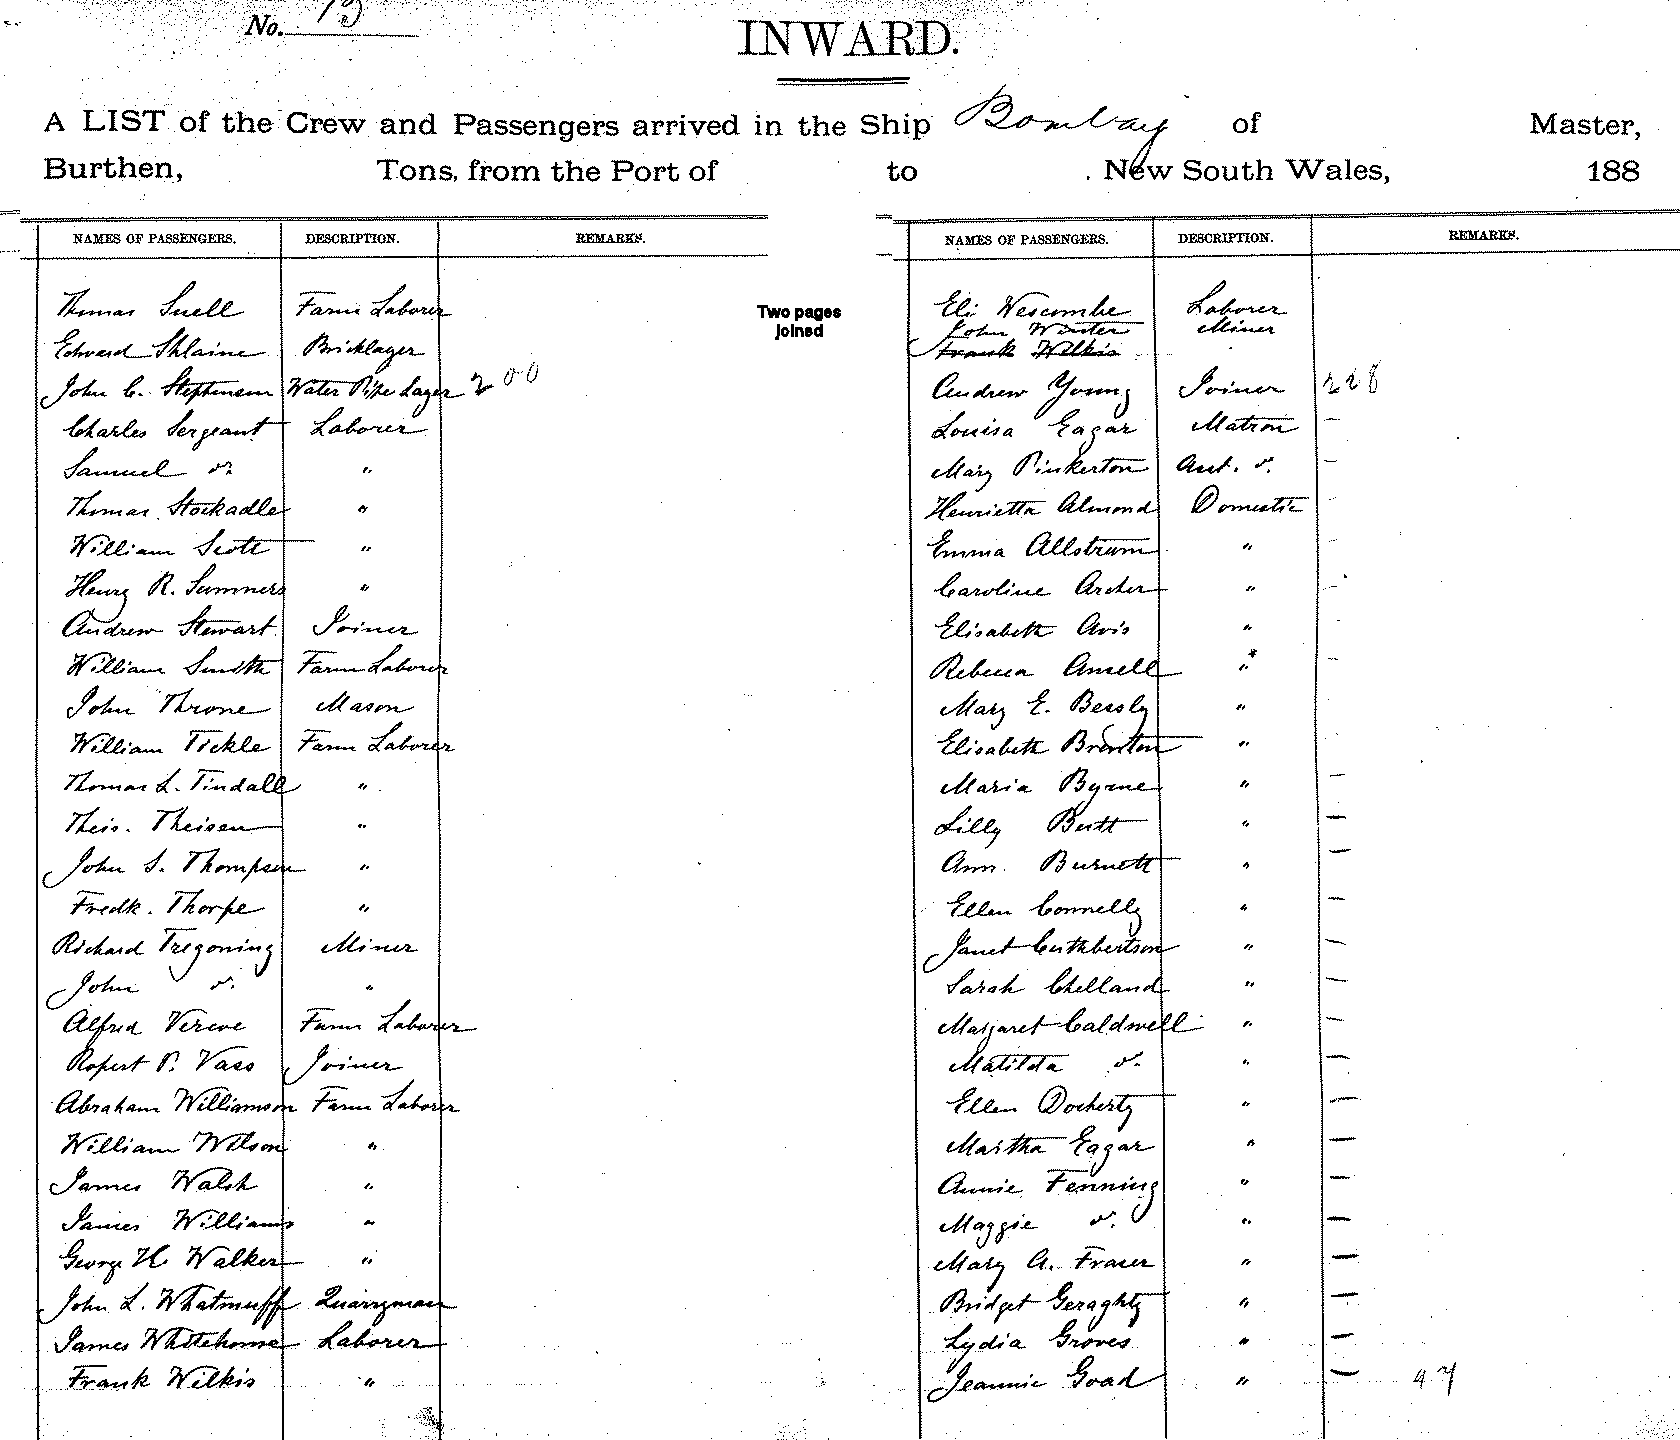 No. 13
INWARD.
A LIST of the Crew and Passengers arrived in the Ship Bombay of Master,
Burthen, Tons, from the Port of to New South Wales, 188
NAMES OF PASSENGERS. DESCRIPTION. REMARKS.
Thomas Snell Farm Laborer
Edward Shlaine Bricklayer
John C. Stephenson Water Pipe Layer 200
Charles Sergeant Laborer
Samuel do. "
Thomas Stockadle "
William Scott "
Henry R. Summers "
Andrew Stewart Joiner
William Smith Farm Laborer
John Throne Mason
William Tickle Farm Laborer
Thomas L. Tindall "
Theis. Theisen "
John S. Thompson "
Fredk. Thorpe "
Richard Tregoning Miner
John do. "
Alfred Verive Farm Laborer
Robert P. Vass Joiner
Abraham Williamson Farm Laborer
William Wilson "
James Walsh "
James Williams "
George H. Walker "
John L. Whatmuff Quarryman
James Whitehorne Laborer
Frank Wilkis "
Two pages
joined
NAMES OF PASSENGERS. DESCRIPTION. REMARKS.
Eli Wescombe Laborer
John Winter Miner
Frank Wilkis
Andrew Young Joiner 228
Louisa Eagar Matron —
Mary Pinkerton Asst. do. —
Henrietta Almond Domestic —
Emma Allstrum " —
Caroline Archer " —
Elisabeth Avis " —
Rebecca Ansell " —
Mary E. Bessly "
Elisabeth Brenton "
Maria Byrne " —
Lilly Butt " —
Ann. Burnett " —
Ellen Connelly " —
Janet Cuthbertson " —
Sarah Chelland " —
Margaret Caldwell " —
Matilda do. " —
Ellen Docherty " —
Martha Eagar " —
Annie Fenning " —
Maggie do. " —
Mary A. Fraser " —
Bridget Geraghty " —
Lydia Groves " —
Jeannie Goad " — 27